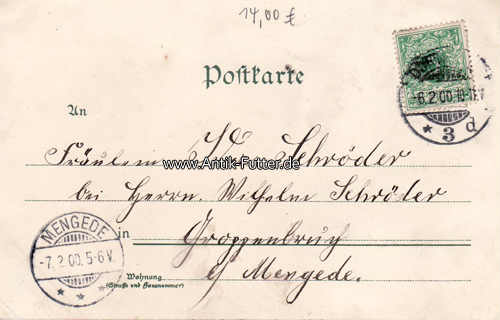 14,00 €
Postkarte
-6.2.00.10-11V.
* 3 d
An
Fräulein W Schröder
www.Antik-Futter.de
bei Herrn. Wilhelm Schröder
in Groppenbruch
b/ Mengede.
MENGEDE
-7.2.00.5-6V.
* * *
Wohnung
(Straße und Hausnummer)